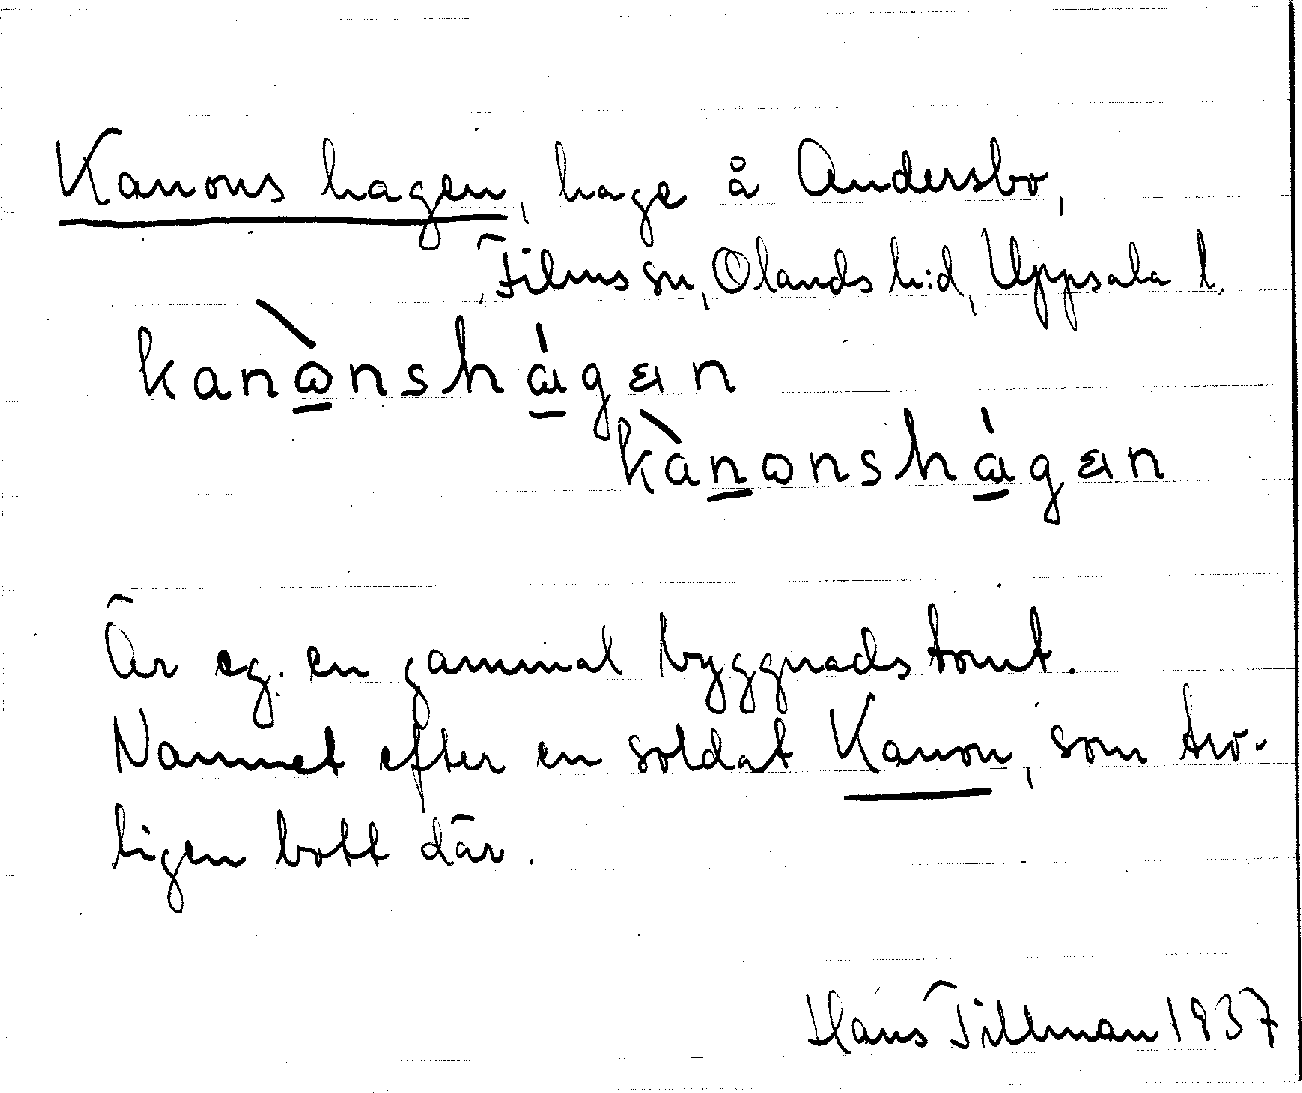 Kanons hagen, hage å Andersbo,
Films sn, Olands h:d, Uppsala l.
kanὼnshágən
kànωnshágən
Är eg. en gammal byggnadstomt.
Namnet efter en soldat Kanon, som tro-
ligen bott där.
Hans Tillman 1937